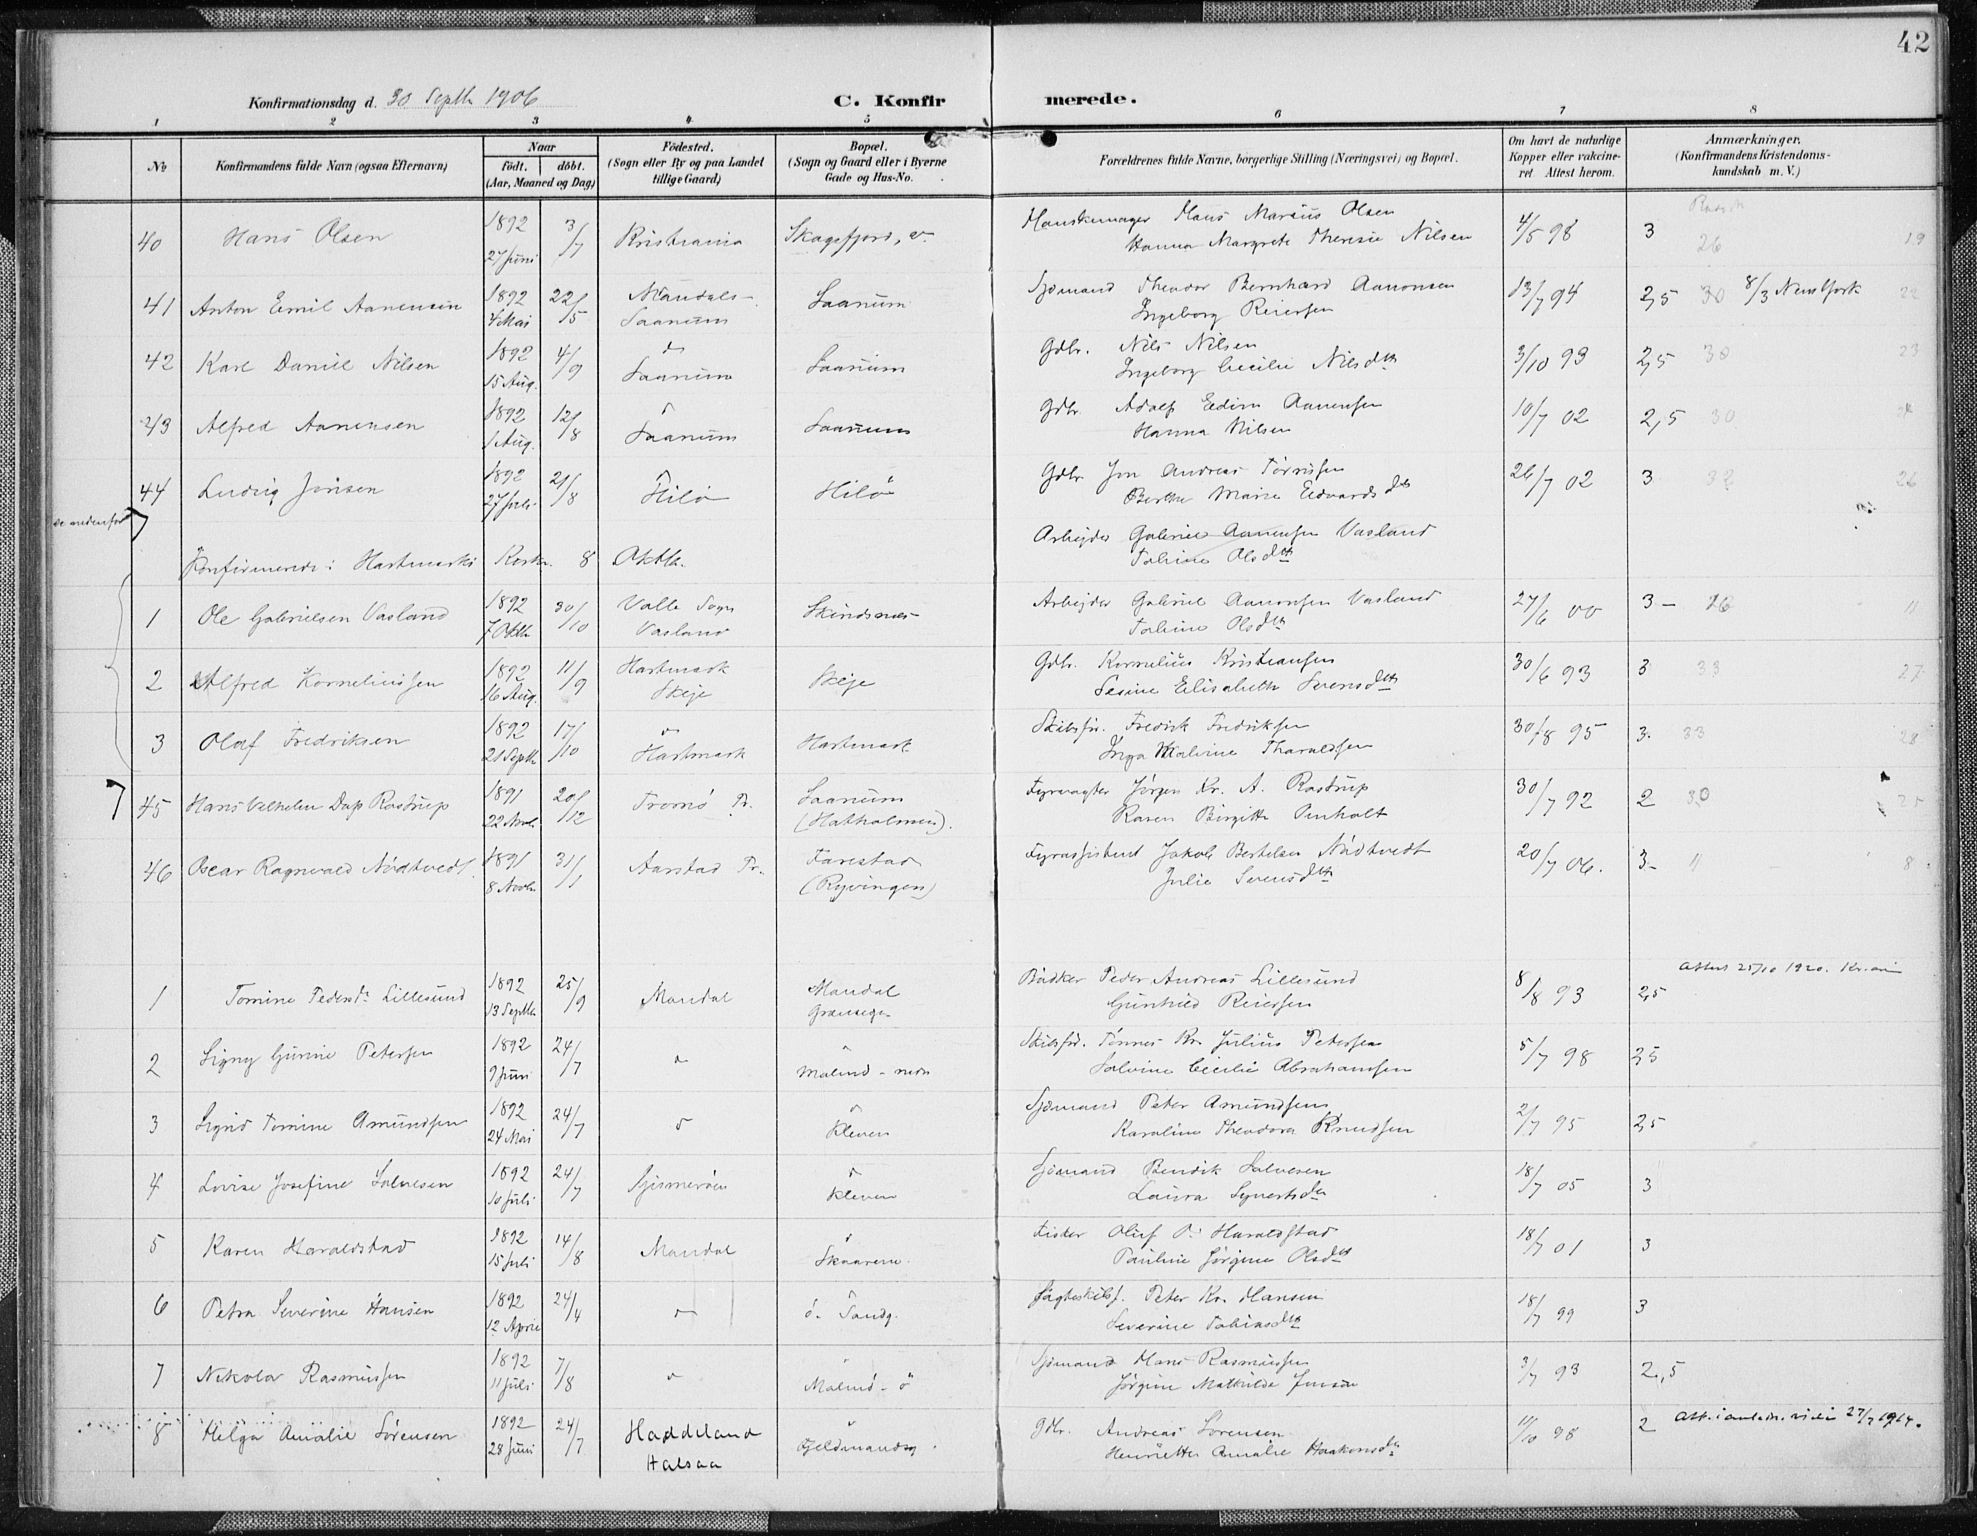 42
Konfirmationsdag d. 30 Septb 1906 C. Konfirmerede.
1 2 3 4 5 6 7 8
No
Konfirmandens fulde Navn (ogsaa Efternavn)
Naar
födt. döbt.
(Aar, Maaned og Dag)
Födested.
(Sogn eller By og paa Landet
tillige Gaard)
Bopæl.
(Sogn og Gaard eller i Byerne
Gade og Hus-No.
Forældrenes fulde Navne, borgerlige Stilling (Næringsvei) og Bopæl.
Om havt de naturlige
Kopper eller vakcine-
ret. Attest herom.
Anmærkninger.
(Konfirmandens Kristendoms-
kundskab m. V.)
40 Hans Olsen 1892 3/7 Kristiania Skogsfjord, v. Hanskemager Hans Marius Olsen 4/5 98 3 26 19
27 Juni Hanna Margrete Theresie Nilsen
41 Anton Emil Aanensen 1892 22/5 Mandals- Saanum Sjømand Theodor Bernhard Aanonsen 13/7 94 2,5 30 8/3 New York 22
4 Mai Saanum Ingeborg Reiersen
42 Karl Daniel Nilsen 1892 4/9 do Saanum Gdbr. Nils Nilsen 3/10 93 2,5 30 23
15 Aug. Saanum Ingeborg Cecilie Nilsdtr
43 Alfred Aanensen 1892 12/8 do Saanum Gdbr Adolf Edvin Aanensen 10/7 02 2,5 30
1 Aug. Saanum Hanna Nilsen
44 Ludvig Jonsen 1892 21/8 Hilø Hilø Gdbr Jon Andreas Tørrisen 26/7 02 3 32 26
27 Juli Berthe Marie Edvardsdtr
se nedenfor
Arbeider Gabriel Aanensen Vasland
Tobine Olsdtr
Konfirmerede i Hartmarks Kirke. 8 Oktb.
1 Ole Gabrielsen Vasland 1892 30/10 Valle Sogn Skindsnes Arbeider Gabriel Aanonsen Vasland 27/6 00 3 – 26 11
7 Oktb Vasland Tobine Olsdtr
2 Alfred Korneliussen 1892 11/9 Hartmark Skeje Gdbr. Kornelius Kristiansen 30/6 93 3 33 27
16 Aug. Skeje Sesine Elisabeth Sørensdtr
3 Olaf Fredriksen 1892 17/10 do Hartmark Skibsfør. Fredrik Fredriksen 30/8 95 3. 33 28
21 Septb Hartmark Inga Malvine Tharaldsen
45 Hans Vilhelm Dop Rostrup 1891 20/12 Tromø Pr. Saanum Fyrvogter Jørgen Kr. A. Rostrup 30/7 92 2 30 25
22 Novb. (Hatholmen). Karen Birgitte Omholt
46 Oscar Ragnvald Nødtvedt 1891 31/1 Aarstad Pr. Farestad Fyrassistent Jakob Bertelsen Nødtvedt 20/7 06. 3- 11 8
8 Novb. (Ryvingen) Julie Sørensdtr
1 Tomine Pedersdtr Lillesund 1892 25/9 Mandal Mandal Bødker Peder Andreas Lillesund 8/8 93 2,5 Attest 25/10 1920. Kr.ania
13 Septb. Gunhild Reiersen
2 Signy Gurine Petersen 1892 24/7 do do Skibsfør. Tønnes Kr. Julius Petersen 5/7 98 2,5
9 Juni Malmø – nedr Salvine Cecilie Abrahamsen
3 Sigrid Tomine Amundsen 1892 24/7 do do Sjømand Peter Amundsen 2/7 95 2,5
24 Mai Kleven Karoline Theodora Knudsen
4 Lovise Josefine Salvesen 1892 24/7 Gjismerøen do Sjømand Bendik Salvesen 18/7 05 3
10 Juli Kleven Laura Syvertsdtr
5 Karen Haraldstad 1892 14/8 Mandal do Fisker Oluf O. Haraldstad 18/7 01 3
15 Juli Skaarene. Pauline Jørgine Olsdtr
6 Petra Severine Hansen 1892 24/4 do do Jagteskibsf. Peter Kr. Hansen 18/7 99 3
12 April ø. Sandg. Severine Tobiasdtr
7 Nikolar Rasmussen 1892 7/8 do do Sjømand Hans Rasmussen 3/7 93 2,5
11 Juli Malmø – ø Jørgine Mathilde Jensen
8 Helga Amalie Sørensen 1892 24/7 Haddeland do Gdbr. Andreas Sørensen 11/10 98 2 27/7 1914.
28 Juni Halsaa Fjeldmandsg. Henriette Amalie Haakonsdtr